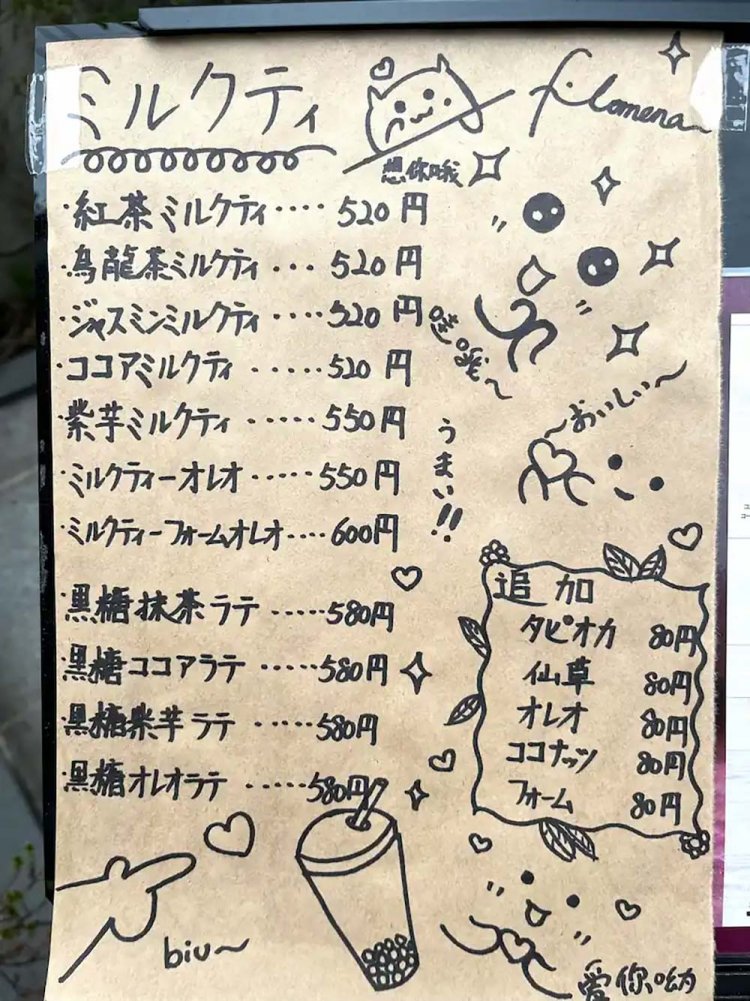 ミルクティ
filomena
想你哦
・紅茶ミルクティ・・・・520円
・烏龍茶ミルクティ・・・520円
・ジャスミンミルクティ・・・・520円
・ココアミルクティ・・・・・520円
紫芋ミルクティ・・・・・550円
・ミルクティーオレオ・・・・・550円
・ミルクティーフォームオレオ・・・・600円
・黒糖抹茶ラテ・・・・・580円
・黒糖ココアラテ・・・・・580円
・黒糖紫芋ラテ・・・・・580円
・黒糖オレオラテ・・・・・580円
〜おいしい〜
うまい!!
追加
タピオカ 80円
仙草 80円
オレオ 80円
ココナッツ 80円
フォーム 80円
biu〜
爱你呦